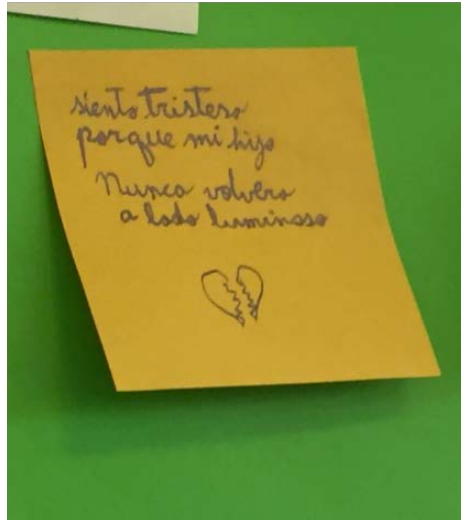 siento tristeso
porque mi hijo
Nunca volvera
a lado luminoso